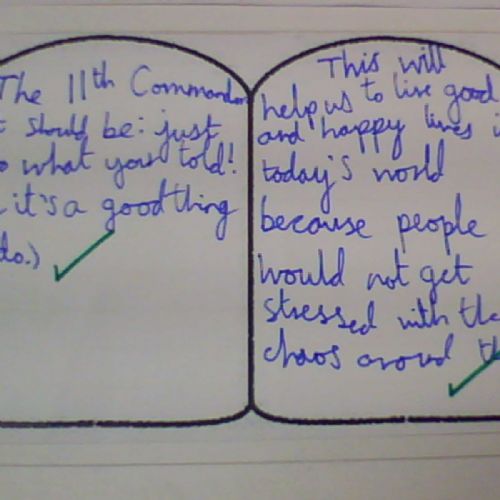 The 11th Command
should be: just
what your told!
it's a good thing
do.)
This will
help us to live good
and happy lives i
today's world
because people
would not get
stressed with the
chaos aroud th